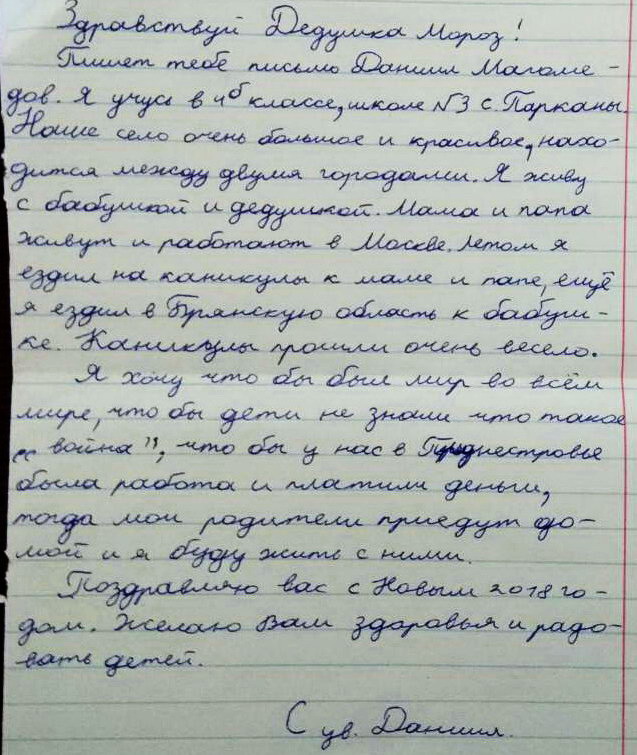 Здравствуй Дедушка Мороз!
Пишет тебе письмо Даниил Магоме-
дов. Я учусь в 4б классе, школе №3 с. Парканы.
Наше село очень большое и красивое, нахо-
дится между двумя городами. Я живу
с бабушкой и дедушкой. Мама и папа
живут и работают в Москве. Летом я
ездил на каникулы к маме и папе, ещё
я ездил в Брянскую область к бабуш-
ке. Каникулы прошли очень весело.
Я хочу что бы был мир во всём
мире, что бы дети не знали что такое
„война", что бы у нас в Приднестровье
была работа и платили деньги,
тогда мои родители приедут до-
мой и я буду жить с ними.
Поздравляю вас с Новым 2018 го-
дом. Желаю Вам здоровья и радо-
вать детей.
С ув. Даниил.